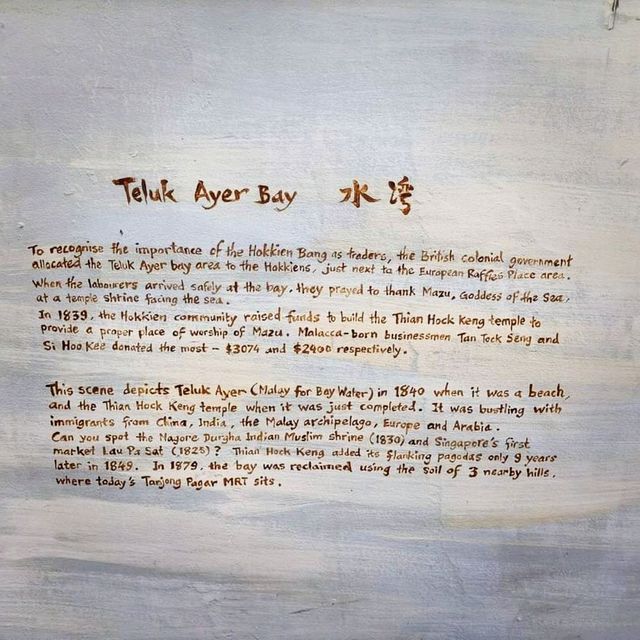 Teluk Ayer Bay 水湾
To recognise the importance of the Hokkien Bang as traders, the British colonial government
allocated the Teluk Ayer bay area to the Hokkiens, just next to the European Raffles Place area.
When the labourers arrived safely at the bay, they prayed to thank Mazu, Goddess of the Sea,
at a temple shrine facing the sea.
In 1839, the Hokkien community raised funds to build the Thian Hock Keng temple to
provide a proper place of worship of Mazu. Malacca-born businessmen Tan Tock Seng and
Si Hoo Kee donated the most - $3074 and $2400 respectively.
This scene depicts Teluk Ayer (Malay for Bay Water) in 1840 when it was a beach,
and the Thian Hock Keng temple when it was just completed. It was bustling with
immigrants from China, India, the Malay archipelago, Europe and Arabia.
Can you spot the Nagore Durgha Indian Muslim shrine (1830) and Singapore's first
market Lau Pa Sat (1825)? Thian Hock Keng added its flanking pagodas only 9 years
later in 1849. In 1879, the bay was reclaimed using the soil of 3 nearby hills,
where today's Tanjong Pagar MRT sits.